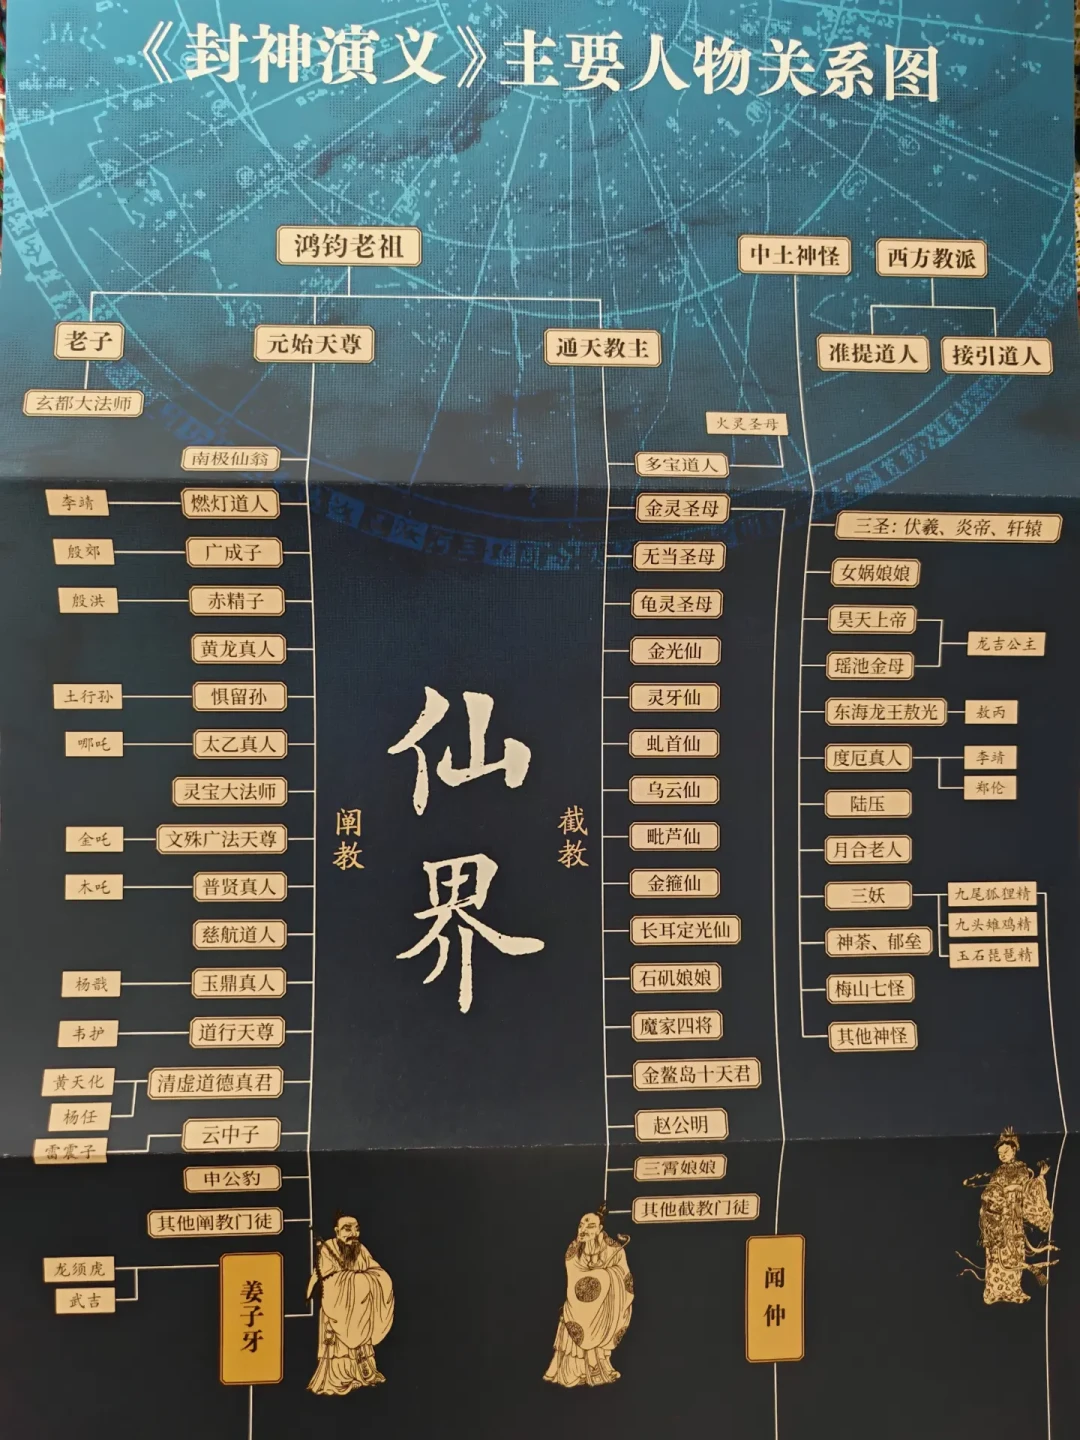 《封神演义》主要人物关系图
鸿钧老祖
中土神怪
西方教派
老子
元始天尊
通天教主
准提道人
接引道人
玄都大法师
火灵圣母
南极仙翁
多宝道人
李靖
燃灯道人
金灵圣母
三圣：伏羲、炎帝、轩辕
殷郊
广成子
无当圣母
女娲娘娘
殷洪
赤精子
龟灵圣母
昊天上帝
龙吉公主
黄龙真人
金光仙
瑶池金母
土行孙
惧留孙
灵牙仙
东海龙王敖光
敖丙
哪吒
太乙真人
虬首仙
度厄真人
李靖
郑伦
灵宝大法师
乌云仙
陆压
金吒
文殊广法天尊
毗芦仙
月合老人
木吒
普贤真人
金箍仙
三妖
九尾狐狸精
九头雉鸡精
玉石琵琶精
慈航道人
长耳定光仙
神荼、郁垒
杨戬
玉鼎真人
石矶娘娘
梅山七怪
韦护
道行天尊
魔家四将
其他神怪
黄天化
杨任
清虚道德真君
金鳌岛十天君
雷震子
云中子
赵公明
申公豹
三霄娘娘
其他阐教门徒
其他截教门徒
龙须虎
武吉
姜子牙
闻仲
阐教
仙界
截教